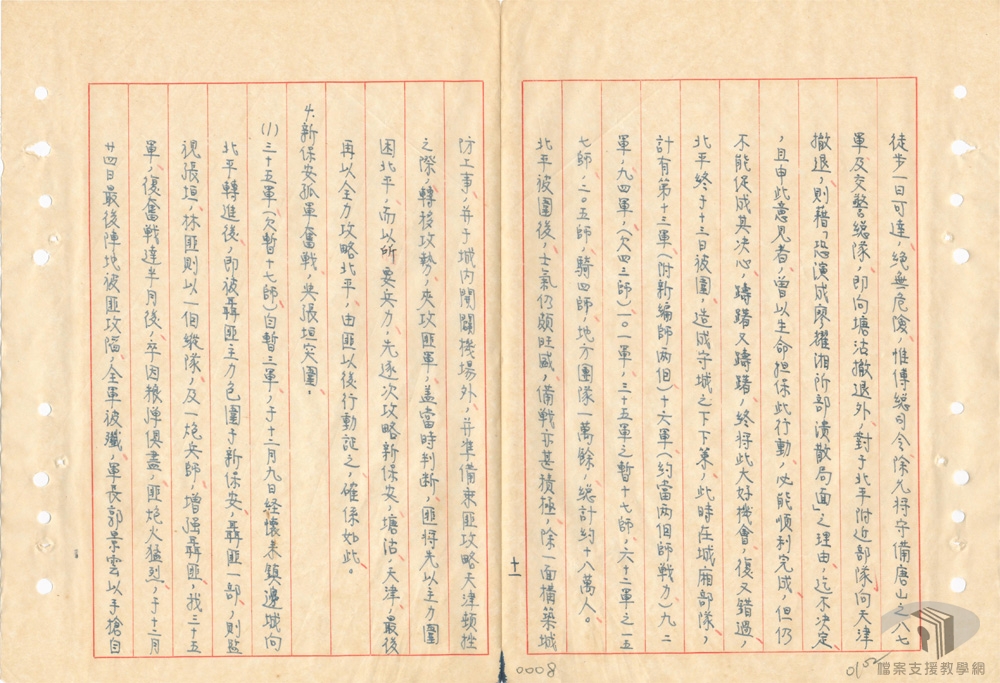 徒步一日可達，絕無危險，惟傅總司令除允將守備唐山之八七
軍及交警總隊，即向塘沽撤退外，對于北平附近部隊向天津
撤退，則藉「恐演成廖耀湘所部潰散局面」之理由，迄不決定
，且申此意見者，曾以生命担保此行動，必能順利完成，但仍
不能促成其决心，躊躇又躊躇，終將此大好機會，復又錯過，
北平終于十三日被圍，造成守城之下下策，此時在城廂部隊，
計有第十三軍(附新編師两個)十六軍(約當两個師戰力)九二
軍，九四軍，(欠四三師)一〇一軍，三十五軍之暫十七師，六十二軍之一五
七師，二〇五師，騎四師，地方團隊一萬餘，總計約十八萬人。
北平被圍後，士氣仍頗旺盛，備戰亦甚積極，除一面構築城
十一
防工事，并于城内開闢機場外，并準備乘匪攻略天津頓挫
之際，轉移攻勢，夾攻匪軍，盖當時判断，匪将先以主力圍
困北平，而以所要兵力，先逐次攻略新保安，塘沽，天津，最後
再以全力攻略北平，由匪以後行動証之，確係如此。
4.新保安孤軍奮戰，與張垣突圍。
(1)三十五軍(欠暫十七師)自暫三軍，于十二月九日経懷来鎮邊城向
北平轉進後，即被聶匪主力包圍于新保安，聶匪一部，則監
視張垣，林匪則以一個縱隊，及一炮兵師，增强聶匪，我三十五
軍，復奮戰達半月後，卒因粮彈俱盡，匪炮火猛烈，于十二月
廿四日最後陣地被匪攻陷，全軍被殲，軍長郭景雲以手槍自
0008
檔案支援教學網